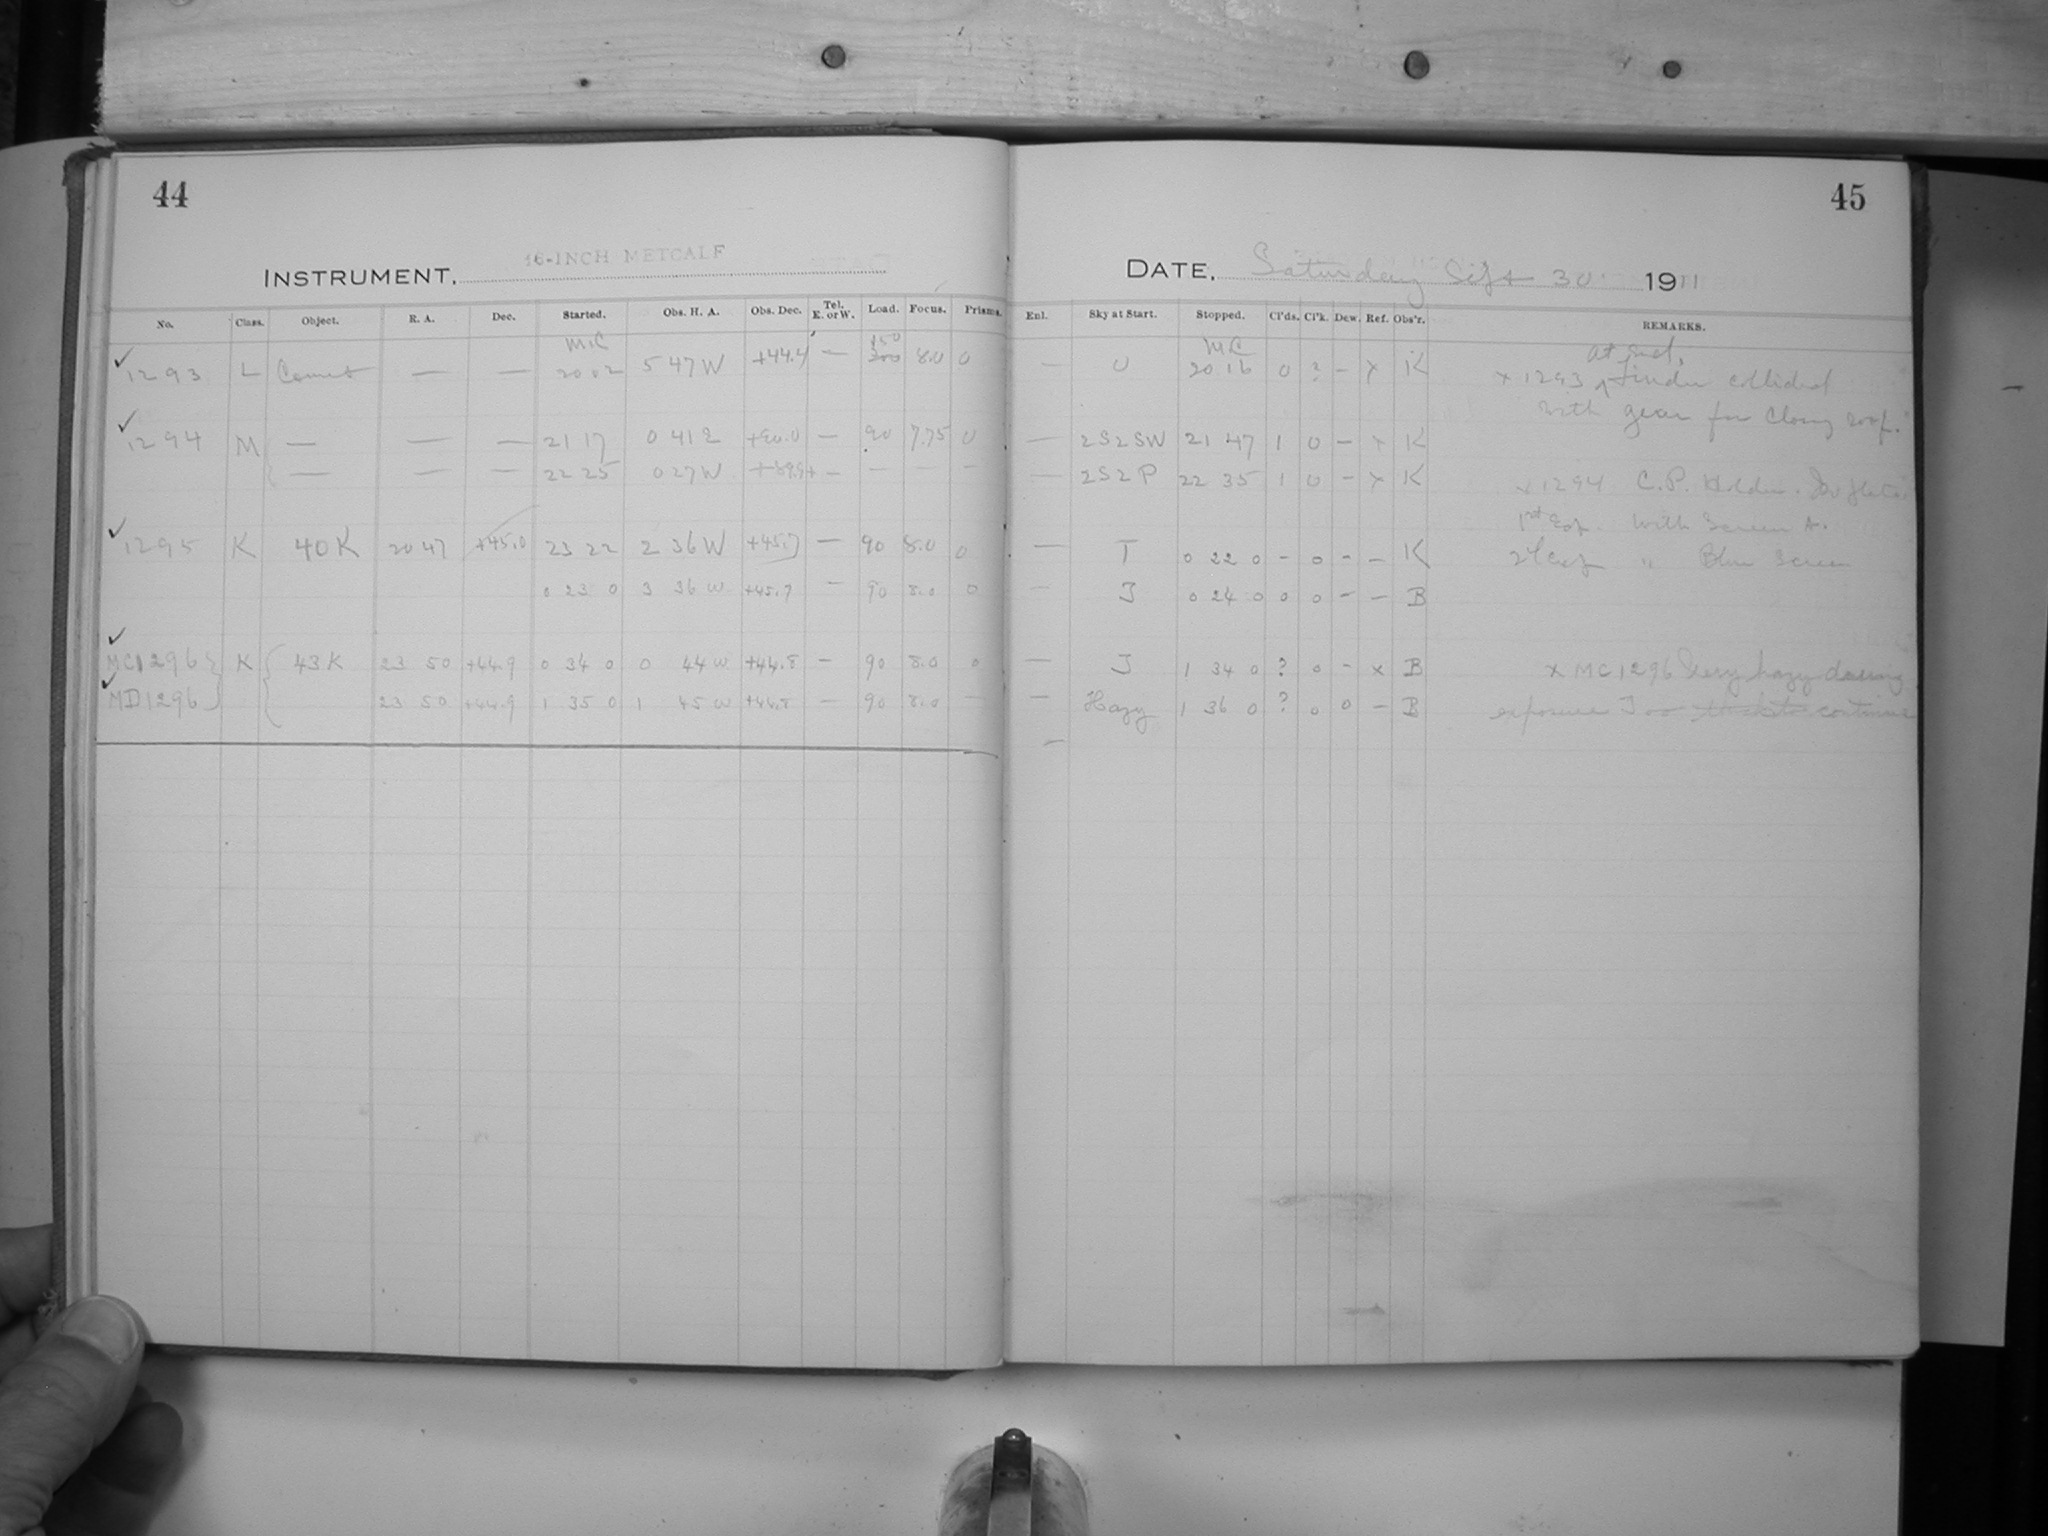 44
45
INSTRUMENT, 16-INCH METCALF
DATE, Saturday Sept 30 1911
No. Class. Object. R. A. Dec. Started. Obs. H. A. Obs. Dec. Tel. E. or W. Load. Focus. Prisms. Enl. Sky at Start. Stopped. Cl'ds. Cl'k. Dew. Ref. Obs'r. REMARKS.
MC MC
1293 L Comet — — 20 02 5 47 W +44.4 — 150 300 8.0 0 — U 20 16 0 ? - x K x 1293 at end, finder collided
with gear for closing roof.
1294 M — — — 21 17 0 41 E +90.0 — 90 7.75 0 — 2S2SW 21 47 1 0 - x K
— — — 22 25 0 27 W — — — — — 2S2P 22 35 1 0 - x K x 1294 C.P. Holder.
1st Exp. with Screen A.
1295 K 40 K 20 47 +45.0 23 22 2 36 W +45.7 — 90 8.0 0 — T 0 22 0 - 0 - - K 2d Exp " Blue Screen
0 23 0 3 36 W +45.7 — 90 8.0 0 — J 0 24 0 0 0 - - B
MC1296 K 43 K 23 50 +44.9 0 34 0 0 44 W +44.8 — 90 8.0 0 — J 1 34 0 ? 0 - x B x MC1296 Very hazy during
MD1296 23 50 +44.9 1 35 0 1 45 W +44.8 — 90 8.0 — — Hazy 1 36 0 ? 0 0 - B exposure Too continue